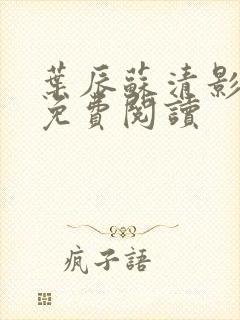 葉辰蘇清影
免費閱讀
疯子語